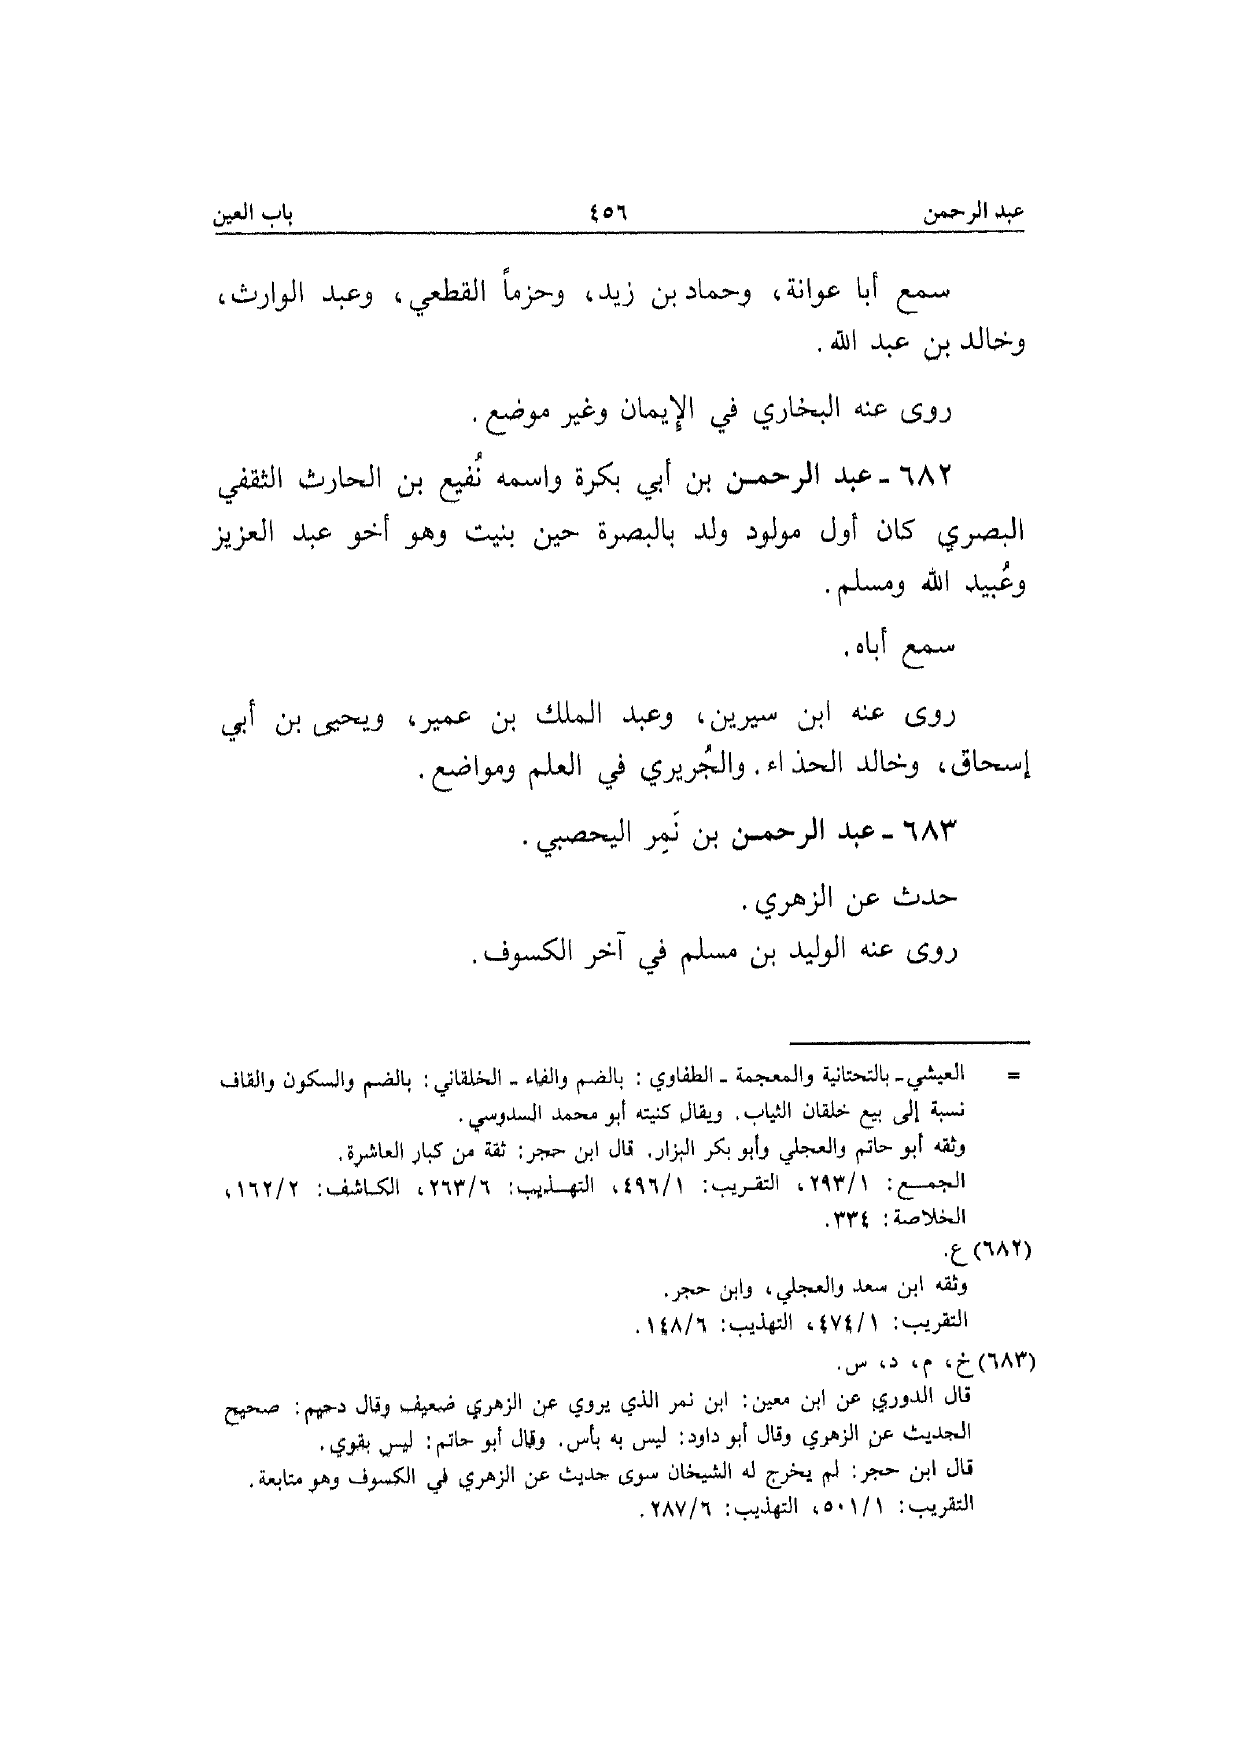 عبد الرحمن ٤٥٦ باب العين
سمع أبا عوانة، وحماد بن زيد، وحزماً القطعي، وعبد الوارث،
وخالد بن عبد الله.
روى عنه البخاري في الإيمان وغير موضع.
٦٨٢ - عبد الرحمن بن أبي بكرة واسمه نُفيع بن الحارث الثقفي
البصري كان أول مولود ولد بالبصرة حين بنيت وهو أخو عبد العزيز
وعُبيد الله ومسلم.
سمع أباه.
روى عنه ابن سيرين، وعبد الملك بن عمير، ويحيى بن أبي
إسحاق، وخالد الحذاء. والجُريري في العلم ومواضع.
٦٨٣ - عبد الرحمن بن نَمِر اليحصبي.
حدث عن الزهري.
روى عنه الوليد بن مسلم في آخر الكسوف.
= العيشي - بالتحتانية والمعجمة - الطفاوي: بالضم والفاء - الخلقاني: بالضم والسكون والقاف
نسبة إلى بيع خلقان الثياب. ويقال كنيته أبو محمد السدوسي.
وثقه أبو حاتم والعجلي وأبو بكر البزار. قال ابن حجر: ثقة من كبار العاشرة.
الجمع: ٢٩٣/١، التقريب: ٤٩٦/١، التهذيب: ٢٦٣/٦، الكاشف: ١٦٢/٢،
الخلاصة: ٣٣٤.
(٦٨٢) ع.
وثقه ابن سعد والعجلي، وابن حجر.
التقريب: ٤٧٤/١، التهذيب: ١٤٨/٦.
(٦٨٣) خ، م، د، س.
قال الدوري عن ابن معين: ابن نمر الذي يروي عن الزهري ضعيف وقال دحيم: صحيح
الحديث عن الزهري وقال أبو داود: ليس به بأس. وقال أبو حاتم: ليس بقوي.
قال ابن حجر: لم يخرج له الشيخان سوى حديث عن الزهري في الكسوف وهو متابعة.
التقريب: ٥٠١/١، التهذيب: ٢٨٧/٦.